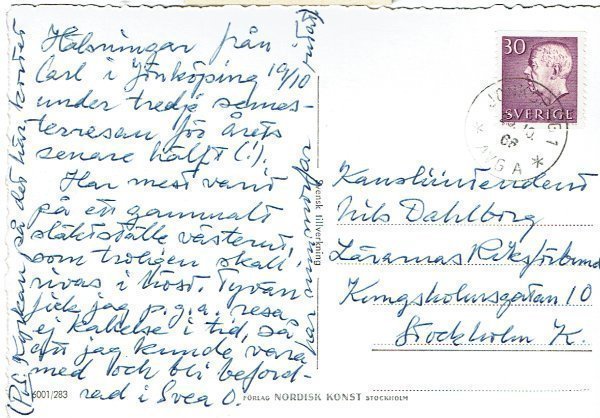 Hälsningar från
Carl i Jönköping 19/10
under tredje semes-
terresan för årets
senare hälft (!).
Har mest varit
på ett gammalt
släktställe västerut,
som troligen skall
rivas i höst. Tyvärr
fick jag p.g.a. resa
ej kallelse i tid, så
att jag kunde vara
med och bli beford-
rad i Svea O.
(P.S. Kyrkan på det här kortet
har min morfar
ritat)
30
SVERIGE
JÖNKÖPING 1
AVGA
Kanslíintendent
Nils Dahlborg
Lärarnas Riksförbund
Kungsholmsgatan 10
Stockholm K.
Svensk tillverkning
6001/283
FÖRLAG NORDISK KONST STOCKHOLM